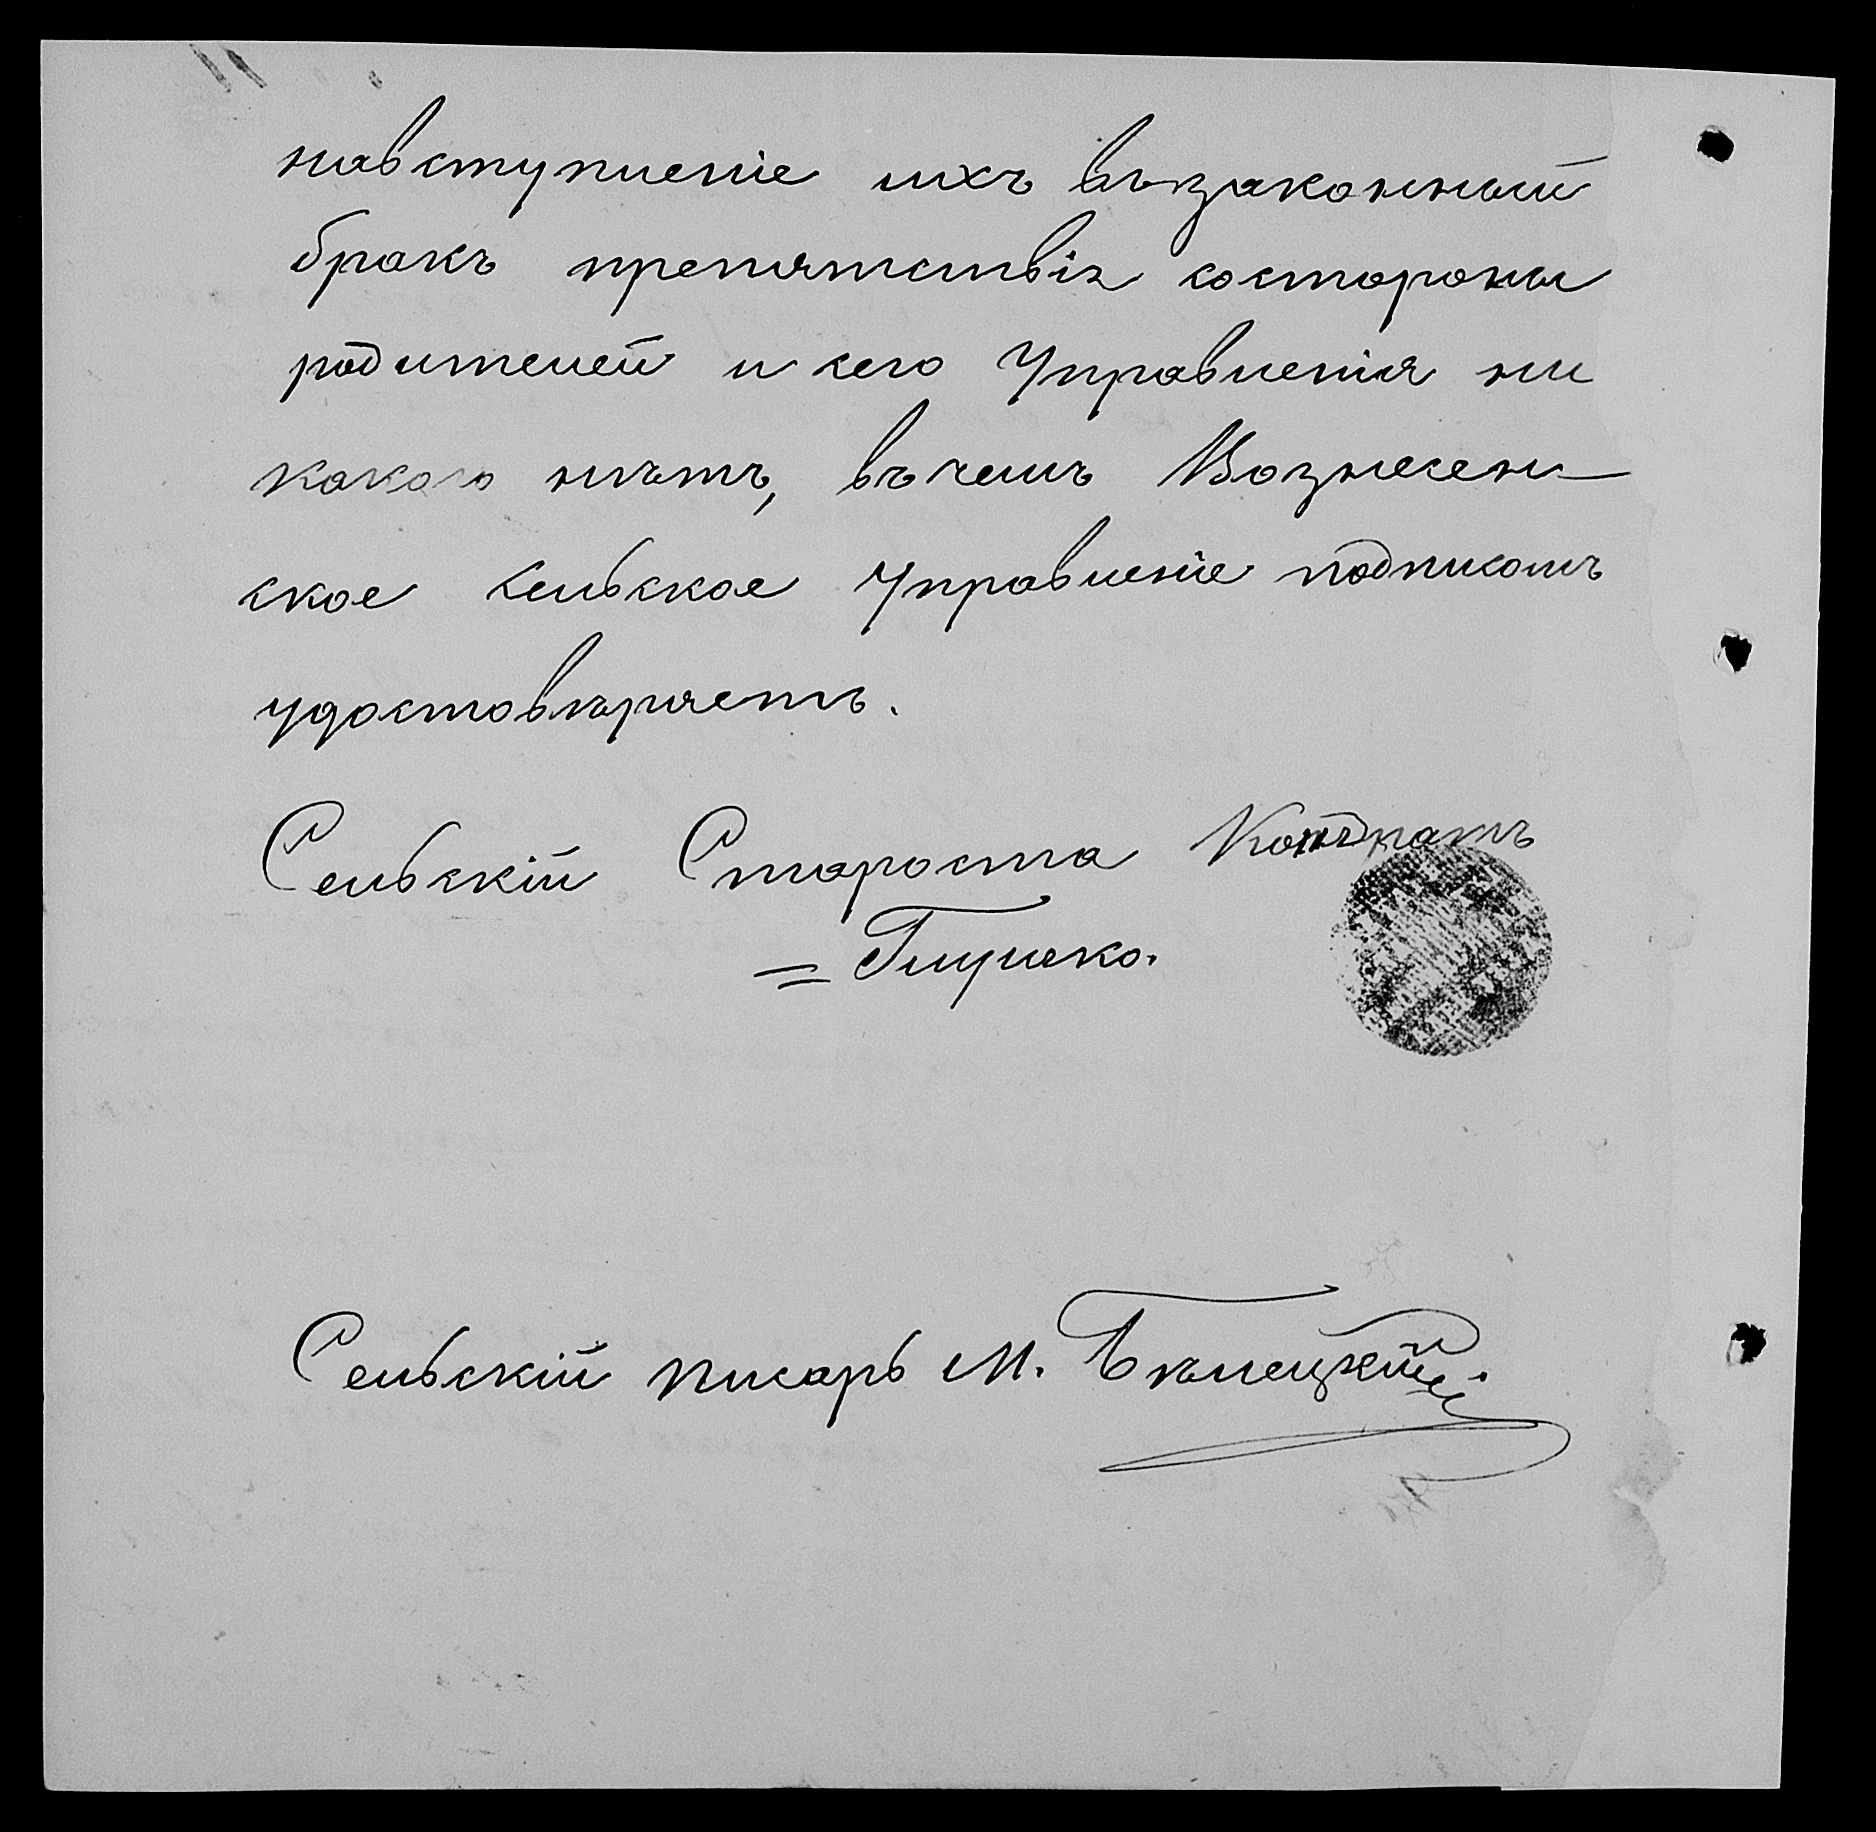 навступленіе ихъ възаконный
бракъ препятствія состороны
родителей и сего Управленія ни
какого нѣтъ, въ чемъ Вознесен-
ское сельское Управленіе подписомъ
удостовѣряетъ.
Сельскій Староста Кондратъ
= Глушко.
Сельскій писарь М. Бѣлецкій